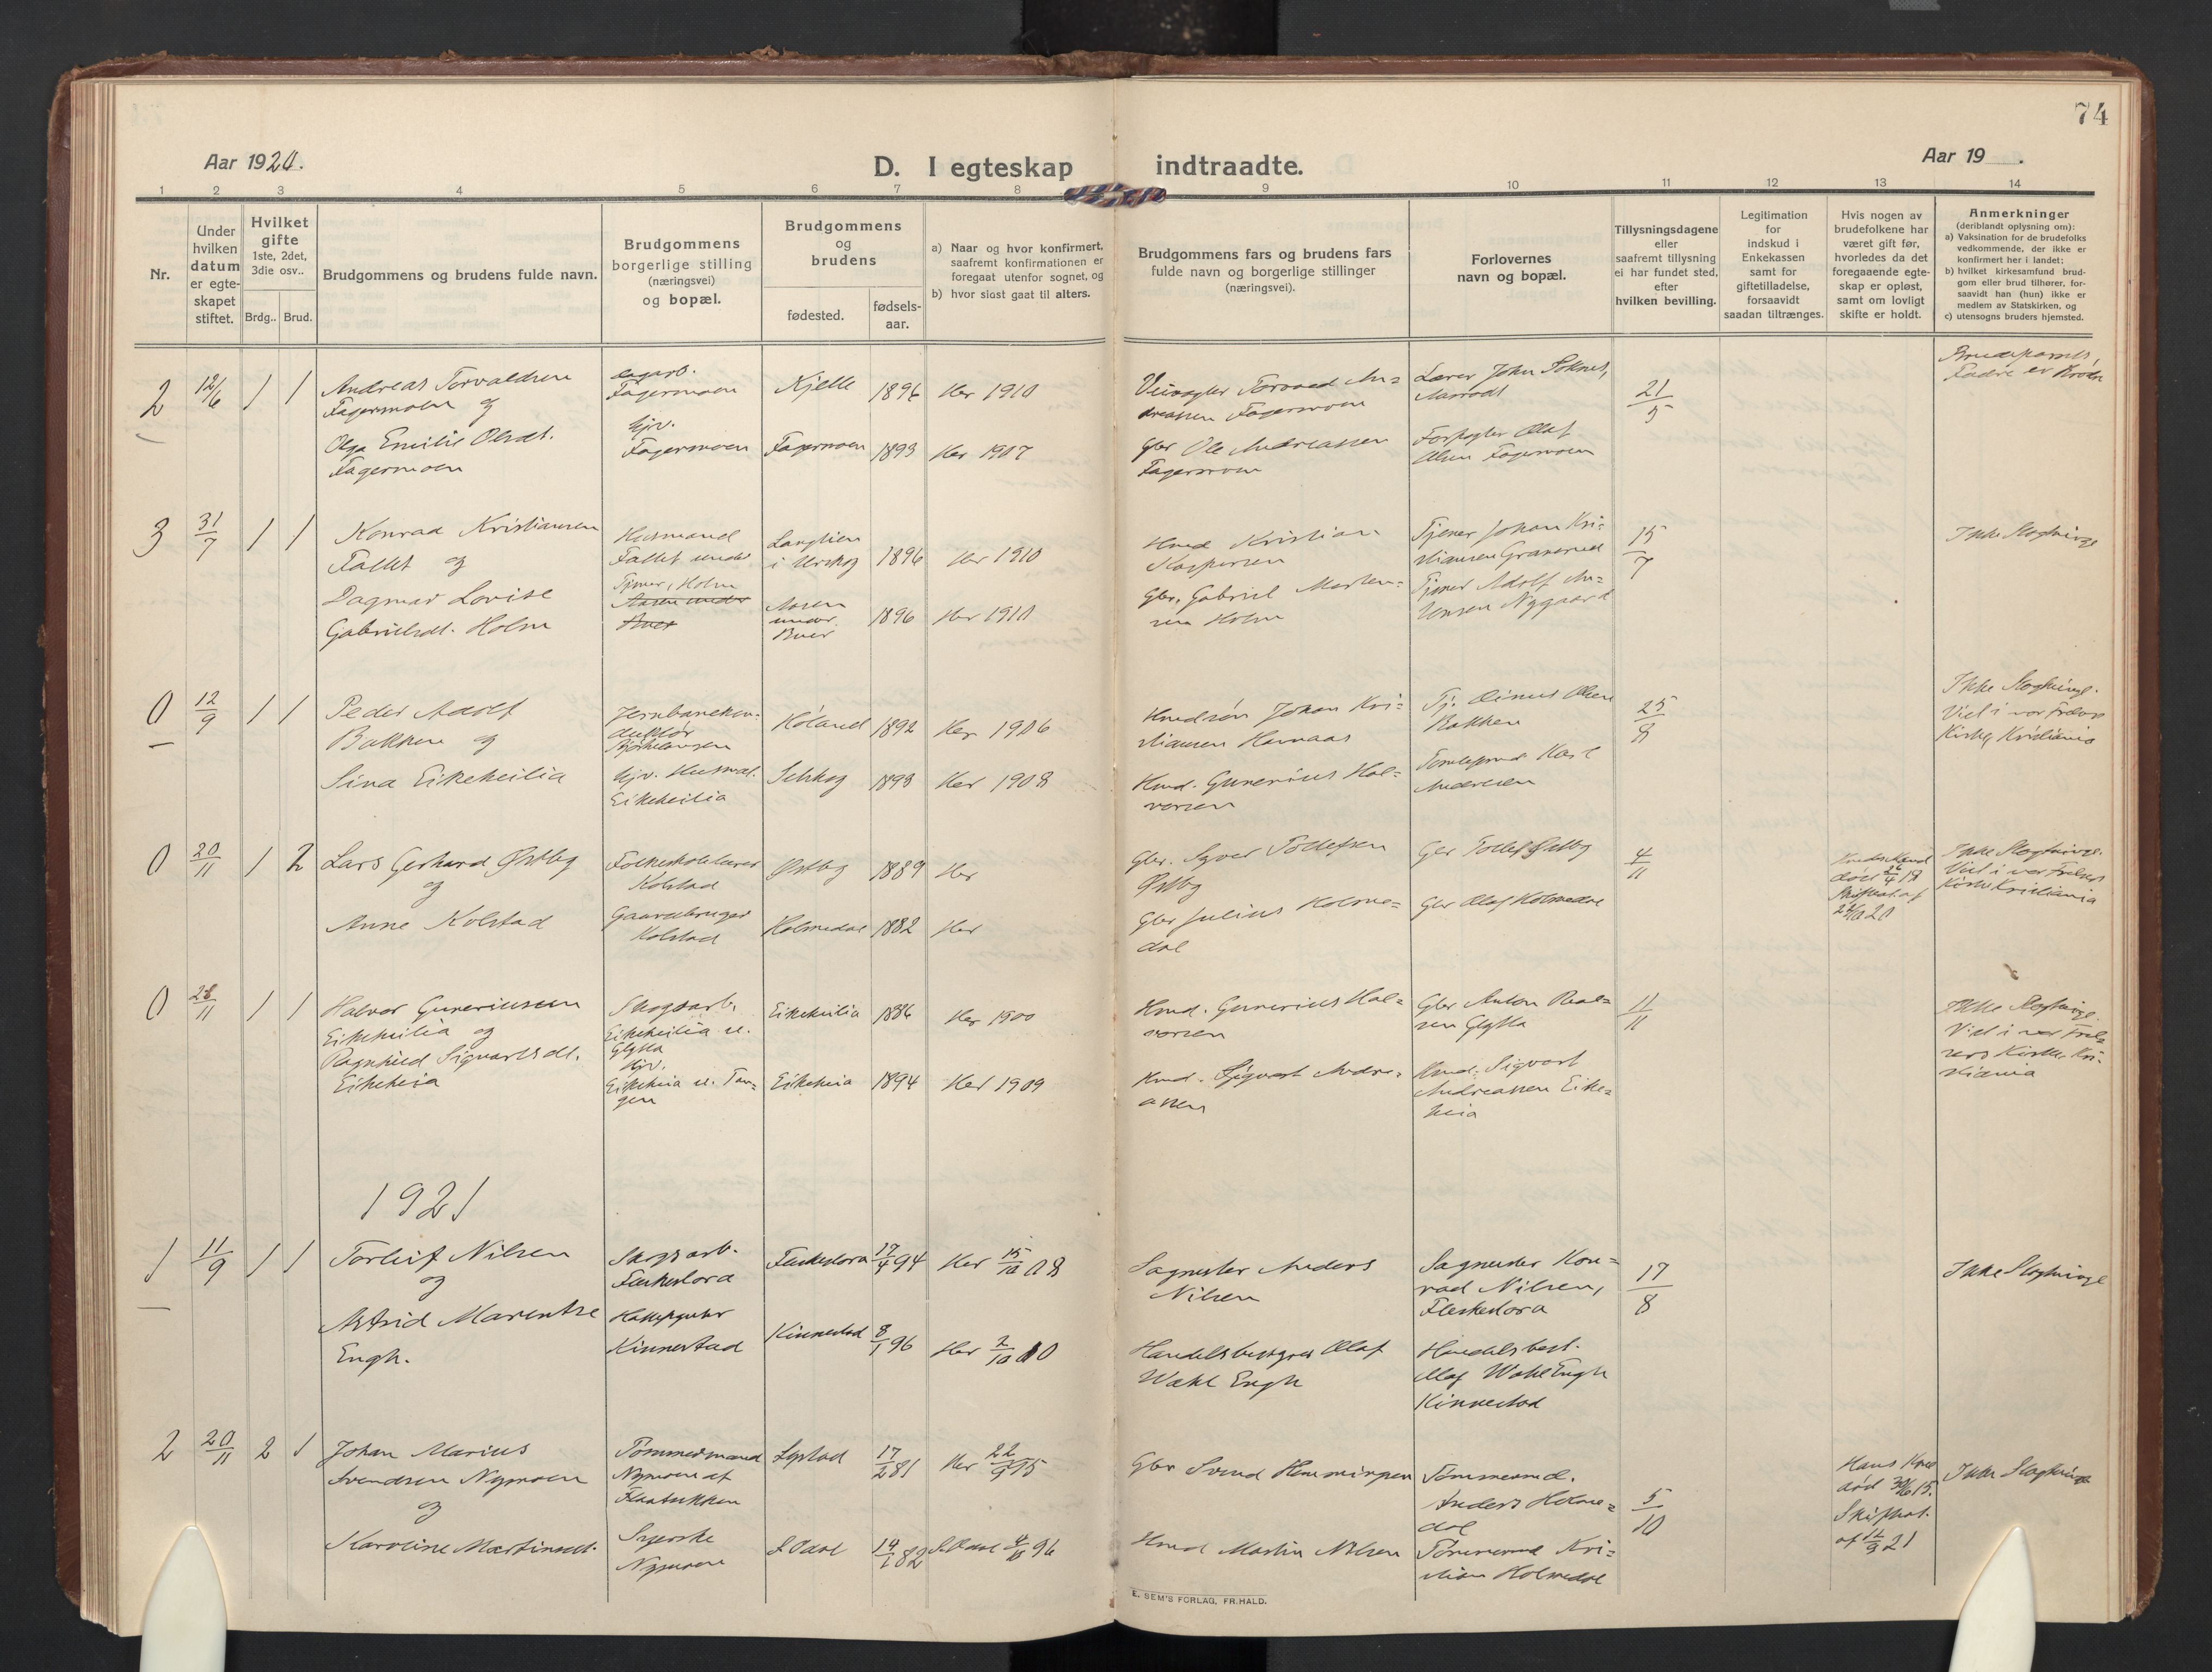 74
Aar 1920.
D. I egteskap indtraadte.
Aar 19 .
1 2 3 4 5 6 7 8 9 10 11 12 13 14
Nr.
Under hvilken datum er egte-skapet stiftet.
Hvilket gifte 1ste, 2det, 3die osv..
Brdg.. Brud.
Brudgommens og brudens fulde navn.
Brudgommens borgerlige stilling (næringsvei) og bopæl.
Brudgommens og brudens
fødested.
fødsels-aar.
a) Naar og hvor konfirmert, saafremt konfirmationen er foregaat utenfor sognet, og
b) hvor sidst gaat til alters.
Brudgommens fars og brudens fars fulde navn og borgerlige stillinger (næringsvei).
Forlovernes navn og bopæl.
Tillysningsdagene eller saafremt tillysning ei har fundet sted, efter hvilken bevilling.
Legitimation for indskud i Enkekassen samt for giftetilladelse, forsaavidt saadan tiltrænges.
Hvis nogen av brudefolkene har været gift før, hvorledes da det foregaaende egte-skap er opløst, samt om lovligt skifte er holdt.
Anmerkninger (deriblandt oplysning om):
a) Vaksination for de brudefolks vedkommende, der ikke er konfirmert her i landet;
b) hvilket kirkesamfund brud-gom eller brud tilhører, for-saavidt han (hun) ikke er medlem av Statskirken, og
c) utensogns bruders hjemsted.
2 12/6 1 1
Andreas Torvaldsen
Fagermoen og
Olga Emilie Olsdt.
Fagermoen
Fagermoen
Hjv.
Fagermoen
Kjelle 1896 Her 1910
Fagermoen 1893 Her 1907
Veivogter Torvald An=
dreassen Fagermoen
Gbr Ole Andreassen
Fagermoen
Lærer John Soknes,
Forpagter Olaf
Olsen Fagermoen
21/5
3 31/7 1 1
Konrad Kristiansen
Fallet og
Dagmar Lovise
Gabrielsdt. Holm
Husmand
Fallet under
Tjener, Holm
Aasen under
Langlien
i Urskog 1896 Her 1910
Aasen
under
Buer 1896 Her 1911
Hmd Kristian
Kaspersen
Gbr. Gabriel Morten=
sen Holm
Tjener Johan Kri=
stiansen Granerud
Tjener Adolf An=
Jensen Nygaard
15/7
Ikke Slegtninge
0 12/9 1 1
Peder Adolf
Bakken og
Sina Eikeheilia
Jernbanekon=
duktør
Bjørkelangen
Hjv. Husmd.
Eikeheilia
Høland 1892 Her 1906
Setskog 1893 Her 1908
Hmdsøn Johan Kri=
stiansen Harnaas
Hmd. Gunerius Hal=
vorsen
Tj. Olsen
Bakken
Karl
Andersen
25/8
Ikke Slegtninge.
Viel i vor Frelsers
Kirke, Kristiania
0 20/11 1 2
Lars Gerhard Østby
og
Anne Kolstad
Folkeskolelærer
Kolstad
Gaardbruger
Kolstad
Østby 1889 Her
Holmedal 1882 Her
Gbr. Syver Tollefsen
Østby
Gbr Julius Holme=
dal
Gbr Tollef Østby
Gbr Olaf Holmedal
4/11
Ikke Slegtninge.
Viel i vor Frelsers
Kirke Kristiania
0 28/11 1 1
Halvor Guneriussen
Eikeheilia og
Ragnhild Sigvartsdt.
Eikeheia
Skogsarb.
Eikeheilia u.
Hjv.
Eikeheia u. Tan=
gen
Eikeheilia 1886 Her 1900
Eikeheia 1894 Her 1909
Hmd. Gunerius Hal=
vorsen
Hmd. Sigvart Andre=
assen
Gbr Anton
Hmd. Sigvart
Andreassen Eike=
heia
11/11
Ikke Slegtninge.
Viel i vor Frel=
sers Kirke, Kri=
stiania
1921
1 11/9 1 1
Torleif Nilsen
og
Astrid Marentze
Engh.
Skogsarb.
Kinnestad
17/4 94 Her 15/10 08
Kinnestad 8/1 96 Her 2/10 10
Sagmester Anders
Nilsen
Handelsbestyrer Olaf
Wahl Engh
Sagmester Kon=
rad Nilsen,
Handelsbest.
Olaf Wahl Engh
Kinnestad
17/8
Ikke Slegtninge
2 20/11 2 1
Johan Marius
Svendsen Nymoen
og
Karoline Martinsdt.
Tømmermand
Nymoen af
Syerske
Nymoen
17/2 81 Her 22/9 95
S. Odal 14/1 82 S. Odal 4/10 96
Gbr Svend Hemmingsen
Hmd Martin Nilsen
Tømmermd.
Anders Holme=
dal
Tømmermd Kri=
stian Holmedal
5/10
Hans Kone
død 30/6 15.
Skifteat.
af 12/9 21
Ikke Slegtninge
E. SEM'S FORLAG, FR.HALD.